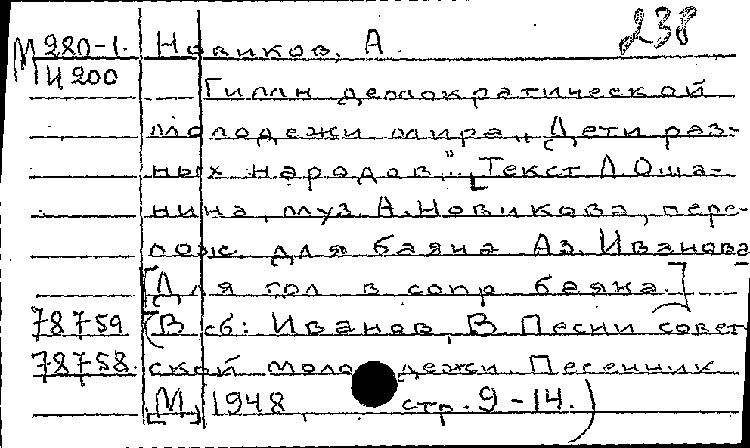 238
М 280-1. Новиков, А.
И 200
Гимн демократической
молодежи мира „Дети раз-
ных народов". [Текст Л. Оша-
нина, муз. А. Новикова, пере-
лож. для баяна Аз. Иванова
[Для гол. в сопр. баяна.]
78759 (В сб: Иванов, В Песни совет-
78758. ской молодежи. Песенник
[М.] 1948, стр. 9-14.)